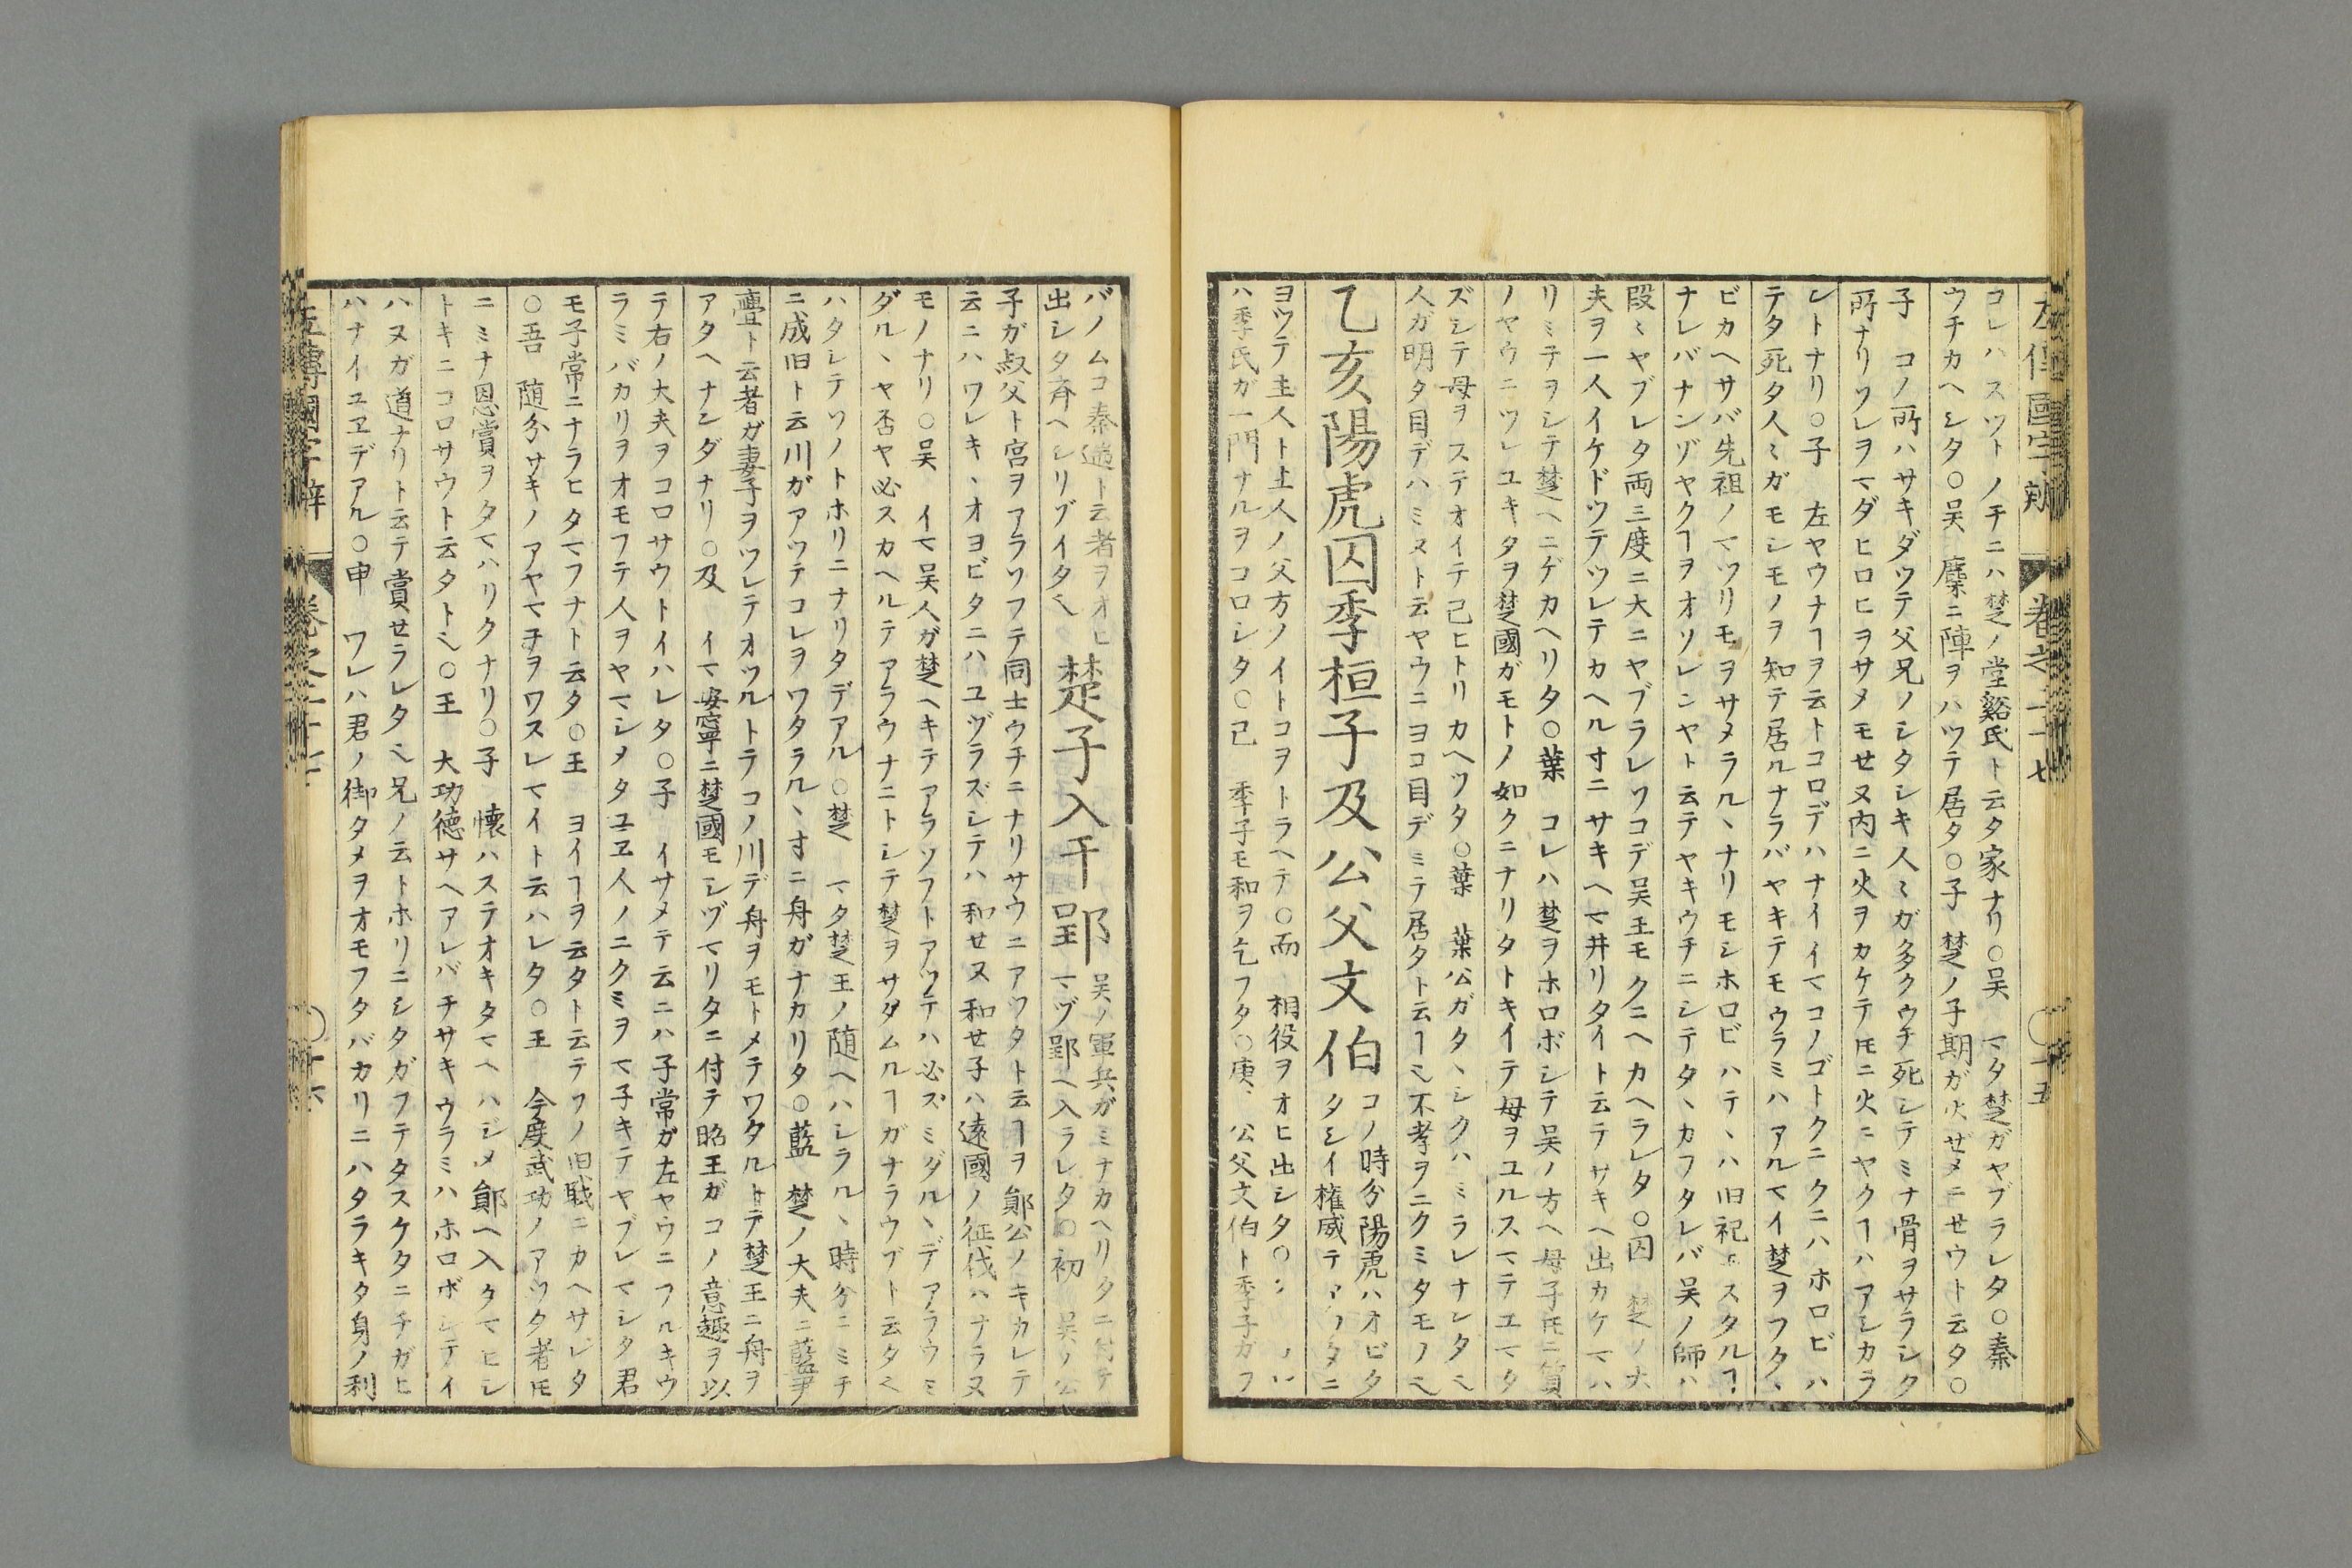 左傳國字辯 卷之二十七 〇十五
コレハスツトノチニハ楚ノ堂谿氏ト云タ家ナリ〇吴 マタ楚ガヤブラレタ〇秦
ウチカヘシタ〇吴 麇ニ陣ヲハツテ居タ〇子 楚ノ子期ガ火ぜメニせウト云タ〇
子 コノ所ハサキダツテ父兄ノシタシキ人〻ガ多クウチ死シテミナ骨ヲサラシク
所ナリソレヲマダヒロヒヲサメモせヌ内ニ火ヲカケテ𪜈ニ火ニヤクヿハアシカラ
レトナリ〇子 左ヤウナヿヲ云トコロデハナイイマコノゴトクニクニハホロビハ
テタ死タ人〻ガモシモノヲ知テ居ルナラバヤキテモウラミハアルマイ楚ヲフタヽ
ビカヘサバ先祖ノマツリモヲサメラルヽナリモシホロビハテヽハ旧祀モスタルヿ
ナレバナンゾヤクヿヲオソレンヤト云テヤキウチニシテタヽカフタレバ吴ノ師ハ
段〻ヤブレタ両三度ニ大ニヤブラレソコデ吴王モクニヘカヘラレタ〇囚 楚ノ大
夫ヲ一人イケドツテツレテカヘル寸ニサキヘマ井リタイト云テサキヘ出カケマハ
リミチヲシテ楚ヘニゲカヘリタ〇葉 コレハ楚ヲホロボシテ吴ノ方ヘ母子𪜈ニ質
ノヤウニツレユキタヲ楚國ガモトノ如クニナリタトキイテ母ヲユルスマテエマタ
ズシテ母ヲステオイテ己ヒトリカヘツタ〇葉 葉公ガタヽシクハミラレナンタ〻
人ガ明タ目デハミヌト云ヤウニヨコ目デミテ居タト云ヿ〻不孝ヲニクミタモノ〻
乙亥陽虎囚季桓子及公父文伯 コノ時分陽虎ハオビタ
タシイ權威
ヨツテ主人ト主人ノ父方ノイトコヲトラヘテ〇而 相役ヲオヒ出シタ〇
ハ季氏ガ一門ナルヲコロシタ〇己 季子モ和ヲ乞フタ〇庚 公父文伯ト季子ガフ
バノムコ秦遄ト云者ヲオヒ
出シタ斉ヘシリゾイタ〻
楚子入于郢 吴ノ軍兵ガミナカヘリタニ付テ
マヅ郢ヘ入ラレタ〇初 吴ノ公
子ガ叔父ト宮ヲアラソフテ同士ウチニナリサウニアツタト云ヿヲ鄖公ノキカレテ
云ニハワレキヽオヨビタニハユヅラズシテハ和せヌ和せ子ハ遠國ノ征伐ハナラヌ
モノナリ〇吴 イマ吴人ガ楚ヘキテアラソフトアツテハ必ズミダルヽデアラウミ
ダルヽヤ否ヤ必スカヘルテアラウナニトシテ楚ヲサダムルヿガナラウゾト云タ〻
ハタシテソノトホリニナリタデアル〇楚 マタ楚王ノ随ヘハシラルヽ時分ニミチ
ニ成旧ト云川ガアツテコレヲワタラルヽ寸ニ舟ガナカリタ〇藍 楚ノ大夫ニ藍尹
亹ト云者ガ妻子ヲツレテオツルトラコノ川デ舟ヲモトメテワタルトテ楚王ニ舟ヲ
アタヘナンダナリ〇及 イマ安寧ニ楚國モシヅマリタニ付テ昭王ガコノ意趣ヲ以
テ右ノ大夫ヲコロサウトイハレタ〇子 イサメテ云ニハ子常ガ左ヤウニフルキウ
ラミバカリヲオモフテ人ヲヤマシメタユヱ人ノニクミヲマ子キテヤブレマシタ君
モ子常ニナラヒタマフナト云タ〇王 ヨイヿヲ云タト云テソノ旧職ニカヘサレタ
〇吾 随分サキノアヤマチヲワスレマイト云ハレタ〇王 今度武功ノアツタ者𪜈
ニミナ恩賞ヲタマハリクナリ〇子 懐ハステオキタマヘハジメ鄖ヘ入タマヒシ
トキニコロサウト云タト〻〇王 大功徳サヘアレバチサキウラミハホロボシテイ
ハヌガ道ナリト云テ賞せラレタ〻兄ノ云トホリニシタガフテタスケタニチガヒ
ハナイユヱデアル〇申 ワレハ君ノ御タメヲオモフタバカリニハタラキタ身ノ利
左傳國字辯 卷之二十七 〇十六